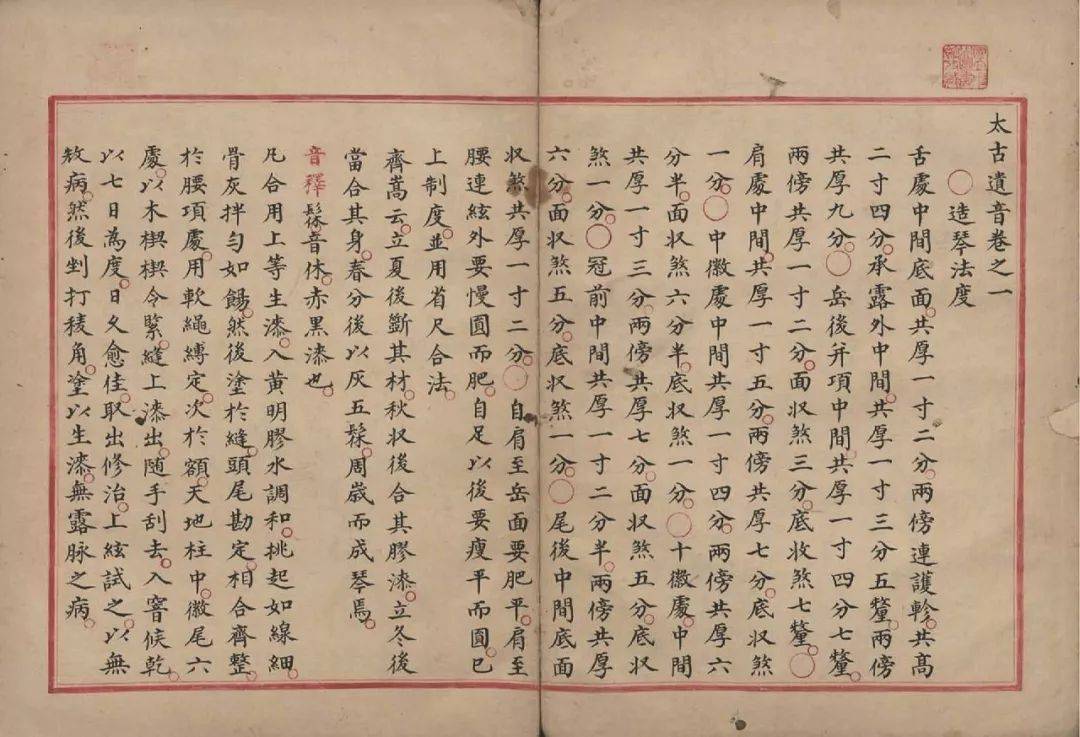 太古遺音卷之一
〇造琴法度
舌處中間底面。共厚一寸二分。兩傍連護軫。共高
二寸四分。承露外中間。共厚一寸三分五釐。兩傍
共厚九分。〇岳後并項中間。共厚一寸四分七釐。
兩傍共厚一寸二分。面収煞三分。底收煞七釐。〇
肩處中間。共厚一寸五分。兩傍共厚七分。底収煞
一分。〇中徽處中間共厚一寸四分。兩傍共厚六
分半。面収煞六分半。底収煞一分。〇十徽處。中間
共厚一寸三分。兩傍共厚七分。面収煞五分。底収
煞一分。〇冠前中間共厚一寸二分半。兩傍共厚
六分。面収煞五分。底収煞一分。〇尾後中間底面
収煞共厚一寸二分。〇自肩至岳面要肥平。肩至
腰連絃外要慢圓而肥。自足以後要瘦平而圓。已
上制度。並用省尺合法。
齊嵩云。立夏後斷其材。秋収後合其膠漆。立冬後
當合其身。春分後以灰五髹。周歲而成琴焉。
音釋髹音休。赤黑漆也。
凡合用上等生漆。入黃明膠水調和。挑起如線細。
骨灰拌勻如餳。然後塗於縫。頭尾勘定。相合齊整。
於腰項處。用軟繩縛定。次於額。天地柱中。徽尾六
處。以木楔楔令緊。縫上漆出。随手刮去。入窨候乾。
以七日為度。日久愈佳。取出修治。上絃試之。以無
敇病。然後剉打稜角。塗以生漆。無露脉之病。